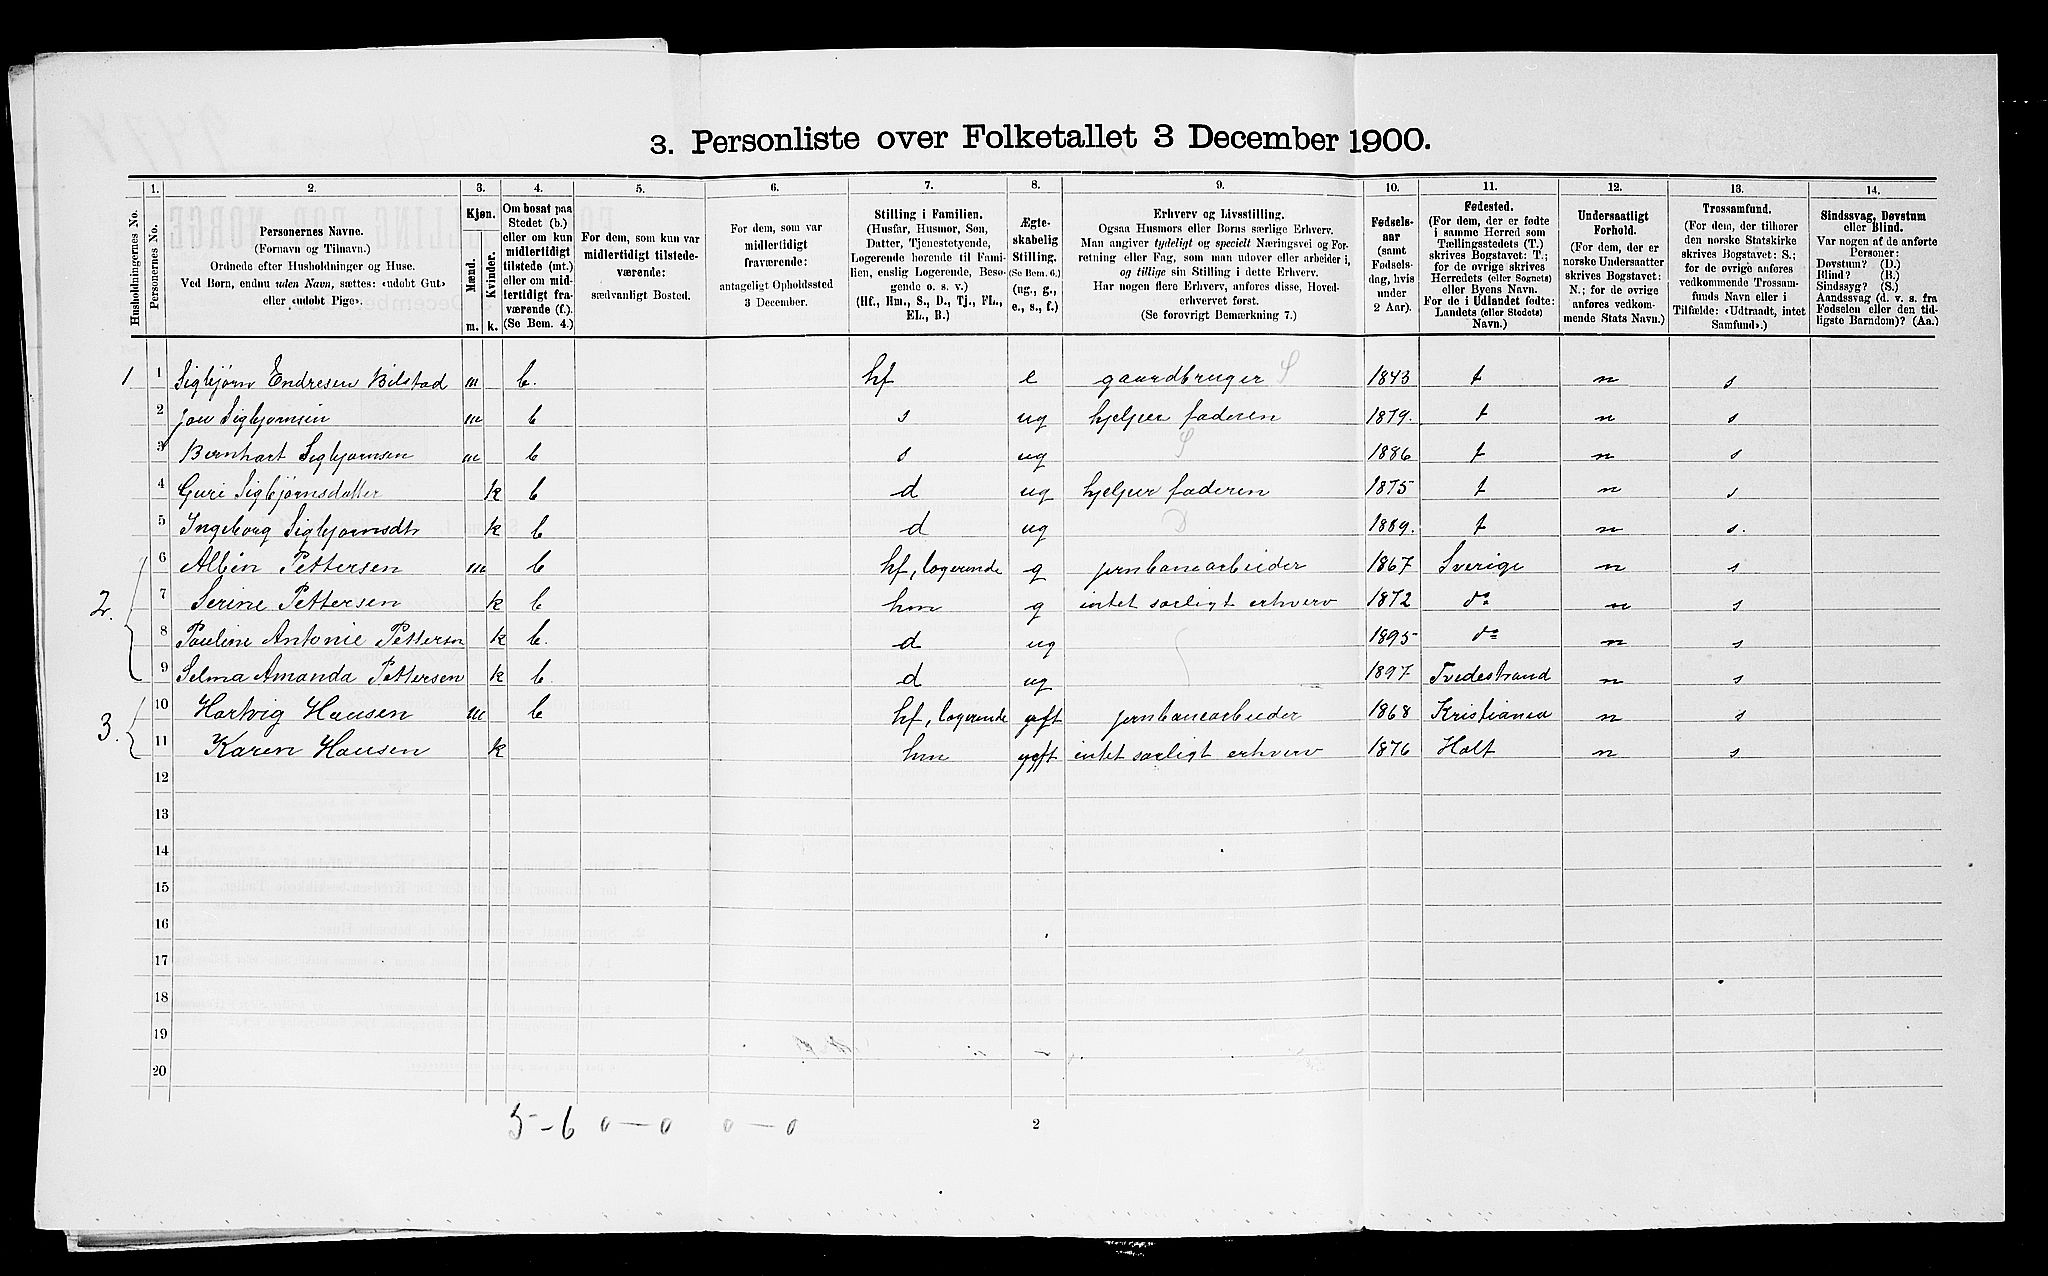 3. Personliste over Folketallet 3 December 1900.
1. 2. 3. 4. 5. 6. 7. 8. 9. 10. 11. 12. 13. 14.
Husholdningernes No.
Personernes No.
Personernes Navne.
(Fornavn og Tilnavn.)
Ordnede efter Husholdninger og Huse.
Ved Børn, endnu uden Navn, sættes: «udøbt Gut»
eller «udøbt Pige».
Kjøn.
Mænd.
Kvinder.
m. k.
Om bosat paa
Stedet (b.)
eller om kun
midlertidigt
tilstede (mt.)
eller om mid-
lertidigt fra-
værende (f.).
(Se Bem. 4.)
For dem, som kun var
midlertidigt tilstede-
værende:
sædvanligt Bosted.
For dem, som var
midlertidigt
fraværende:
antageligt Opholdssted
3 December.
Stilling i Familien.
(Husfar, Husmor, Søn,
Datter, Tjenestetyende,
Logerende hørende til Fami-
lien, enslig Logerende, Besø-
gende o. s. v.)
(Hf., Hm., S., D., Tj., FL.,
EL., B.)
Ægte-
skabelig
Stilling.
(Se Bem. 6.)
(ug., g.,
e., s., f.)
Erhverv og Livsstilling.
Ogsaa Husmors eller Børns særlige Erhverv.
Man angiver tydeligt og specielt Næringsvei og For-
retning eller Fag, som man udøver eller arbeider i,
og tillige sin Stilling i dette Erhverv.
Har nogen flere Erhverv, anføres disse, Hoved-
erhvervet først.
(Se forøvrigt Bemærkning 7.)
Fødsels-
aar
(samt
Fødsels-
dag, hvis
under
2 Aar).
Fødested.
(For dem, der er fødte
i samme Herred som
Tællingsstedets (T.)
skrives Bogstavet: T.;
for de øvrige skrives
Herredets (eller Sognets)
eller Byens Navn.
For de i Udlandet fødte:
Landets (eller Stedets)
Navn.)
Undersaatligt
Forhold.
(For dem, der er
norske Undersaatter
skrives Bogstavet:
N.; for de øvrige
anføres vedkom-
mende Stats Navn.)
Trossamfund.
(For dem, der tilhører
den norske Statskirke
skrives Bogstavet: S.;
for de øvrige anføres
vedkommende Trossam-
funds Navn eller i
Tilfælde: «Udtraadt, intet
Samfund».)
Sindssvag, Døvstum
eller Blind.
Var nogen af de anførte
Personer:
Døvstum? (D.)
Blind? (B.)
Sindssyg? (S.)
Aandssvag (d. v. s. fra
Fødselen eller den tid-
ligste Barndom)? (Aa.)
1 1 Sigbjørn Endresen Bilstad m b. hf e gaardbruger S 1843 t n s
2 Jon Sigbjørnsen m b s ug hjelper faderen 1879. t n s
3 Bernhart Sigbjørnsen m b s ug S 1886 t n s
4 Guri Sigbjørnsdatter k b d ug hjelper faderen 1875 t n s
5 Ingeborg Sigbjørnsdtr k b d ug D 1889. t n s.
2. 6 Albin Pettersen m b hf, logerende g jernbanearbeider 1867 Sverige n s
7 Serine Pettersen k b hm g intet særligt erhverv 1872 do n s
8 Pauline Antonie Pettersen k b. d ug 1895 do n s
9 Selma Amanda Pettersen k b. d ug 1897 Tvedestrand n s
3. 10 Hartvig Hansen m b hf, logerende gift jernbanearbeider 1868 Kristiania n s
11 Karen Hansen k hm gift intet særligt erhverv 1876 Holt n s
12
13
14
15
16
17
18
19
20
5-6 0-0 0-0 2